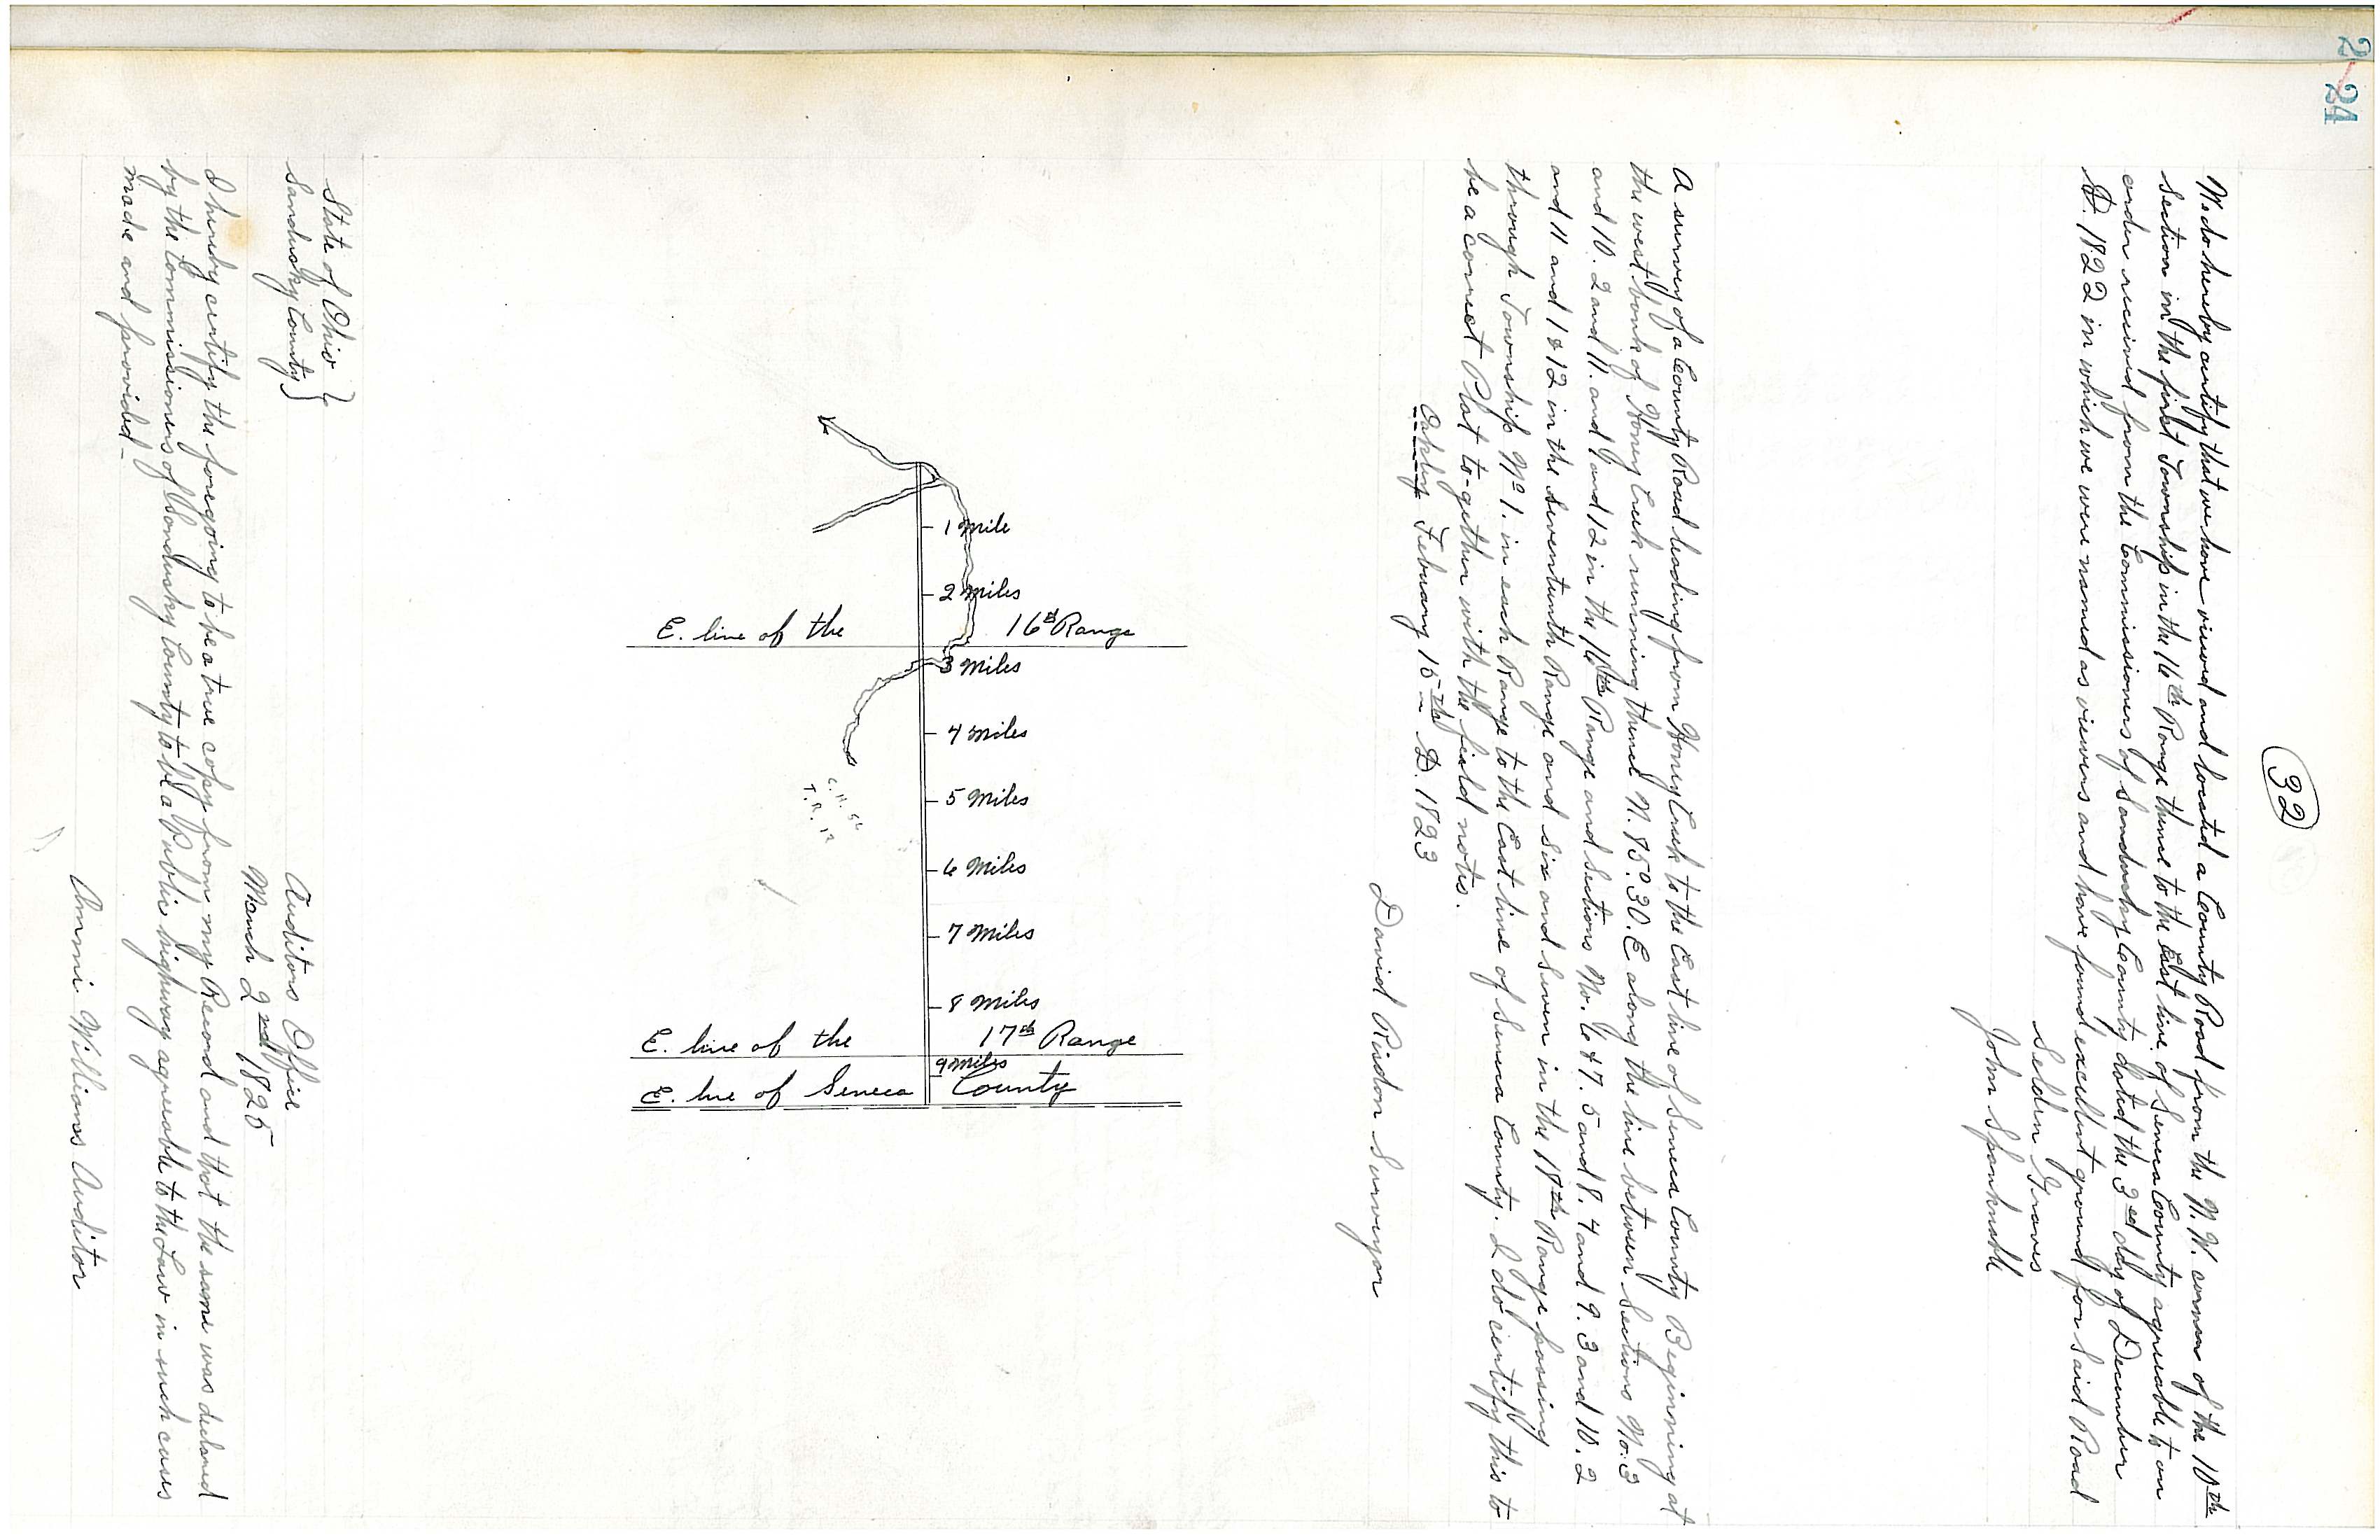 2-24
32
We do hereby certify that we have viewed and located a County Road from the N.W. corner of the 10th
Section in the first Township in the 16th Range thence to the East line of Seneca County agreeable to an
order received from the Commissioners of Sandusky County dated the 3ed day of December
D. 1822 in which we were named as viewers and have found excellent ground for said Road
Selden Graves
John Sponhnable
A survey of a County Road leading from Honey Creek to the East line of Seneca County Beginning at
the west bank of Honey Creek running thence N. 85°.30. E along the line between Sections No. 3
and 10. 2 and 11. and 1 and 12 in the 16th Range and Sections No. 6 & 7. 5 and 8. 4 and 9. 3 and 10. 2
and 11 and 1 & 12 in the Seventeenth Range and six and seven in the 18th Range passing
through Township No 1. in each Range to the East line of Seneca County. I do certify this to
be a correct Plat to-gether with the field notes.
February 15th D. 1823
David Risdon Surveyor
1 Mile
2 Miles
E. line of the 16th Range
3 Miles
4 Miles
5 Miles
C.R. 54
T.R. 12
6 Miles
7 Miles
8 Miles
E. line of the 17th Range
9 Miles
E. line of Seneca County
State of Ohio }
Sandusky County }
Auditors Office
March 2nd 1825
I hereby certify the foregoing to be a true copy from my Record and that the same was declared
by the Commissioners of Sandusky County to be a Public highway agreeable to the Law in such cases
made and provided-
Ammi Williams Auditor